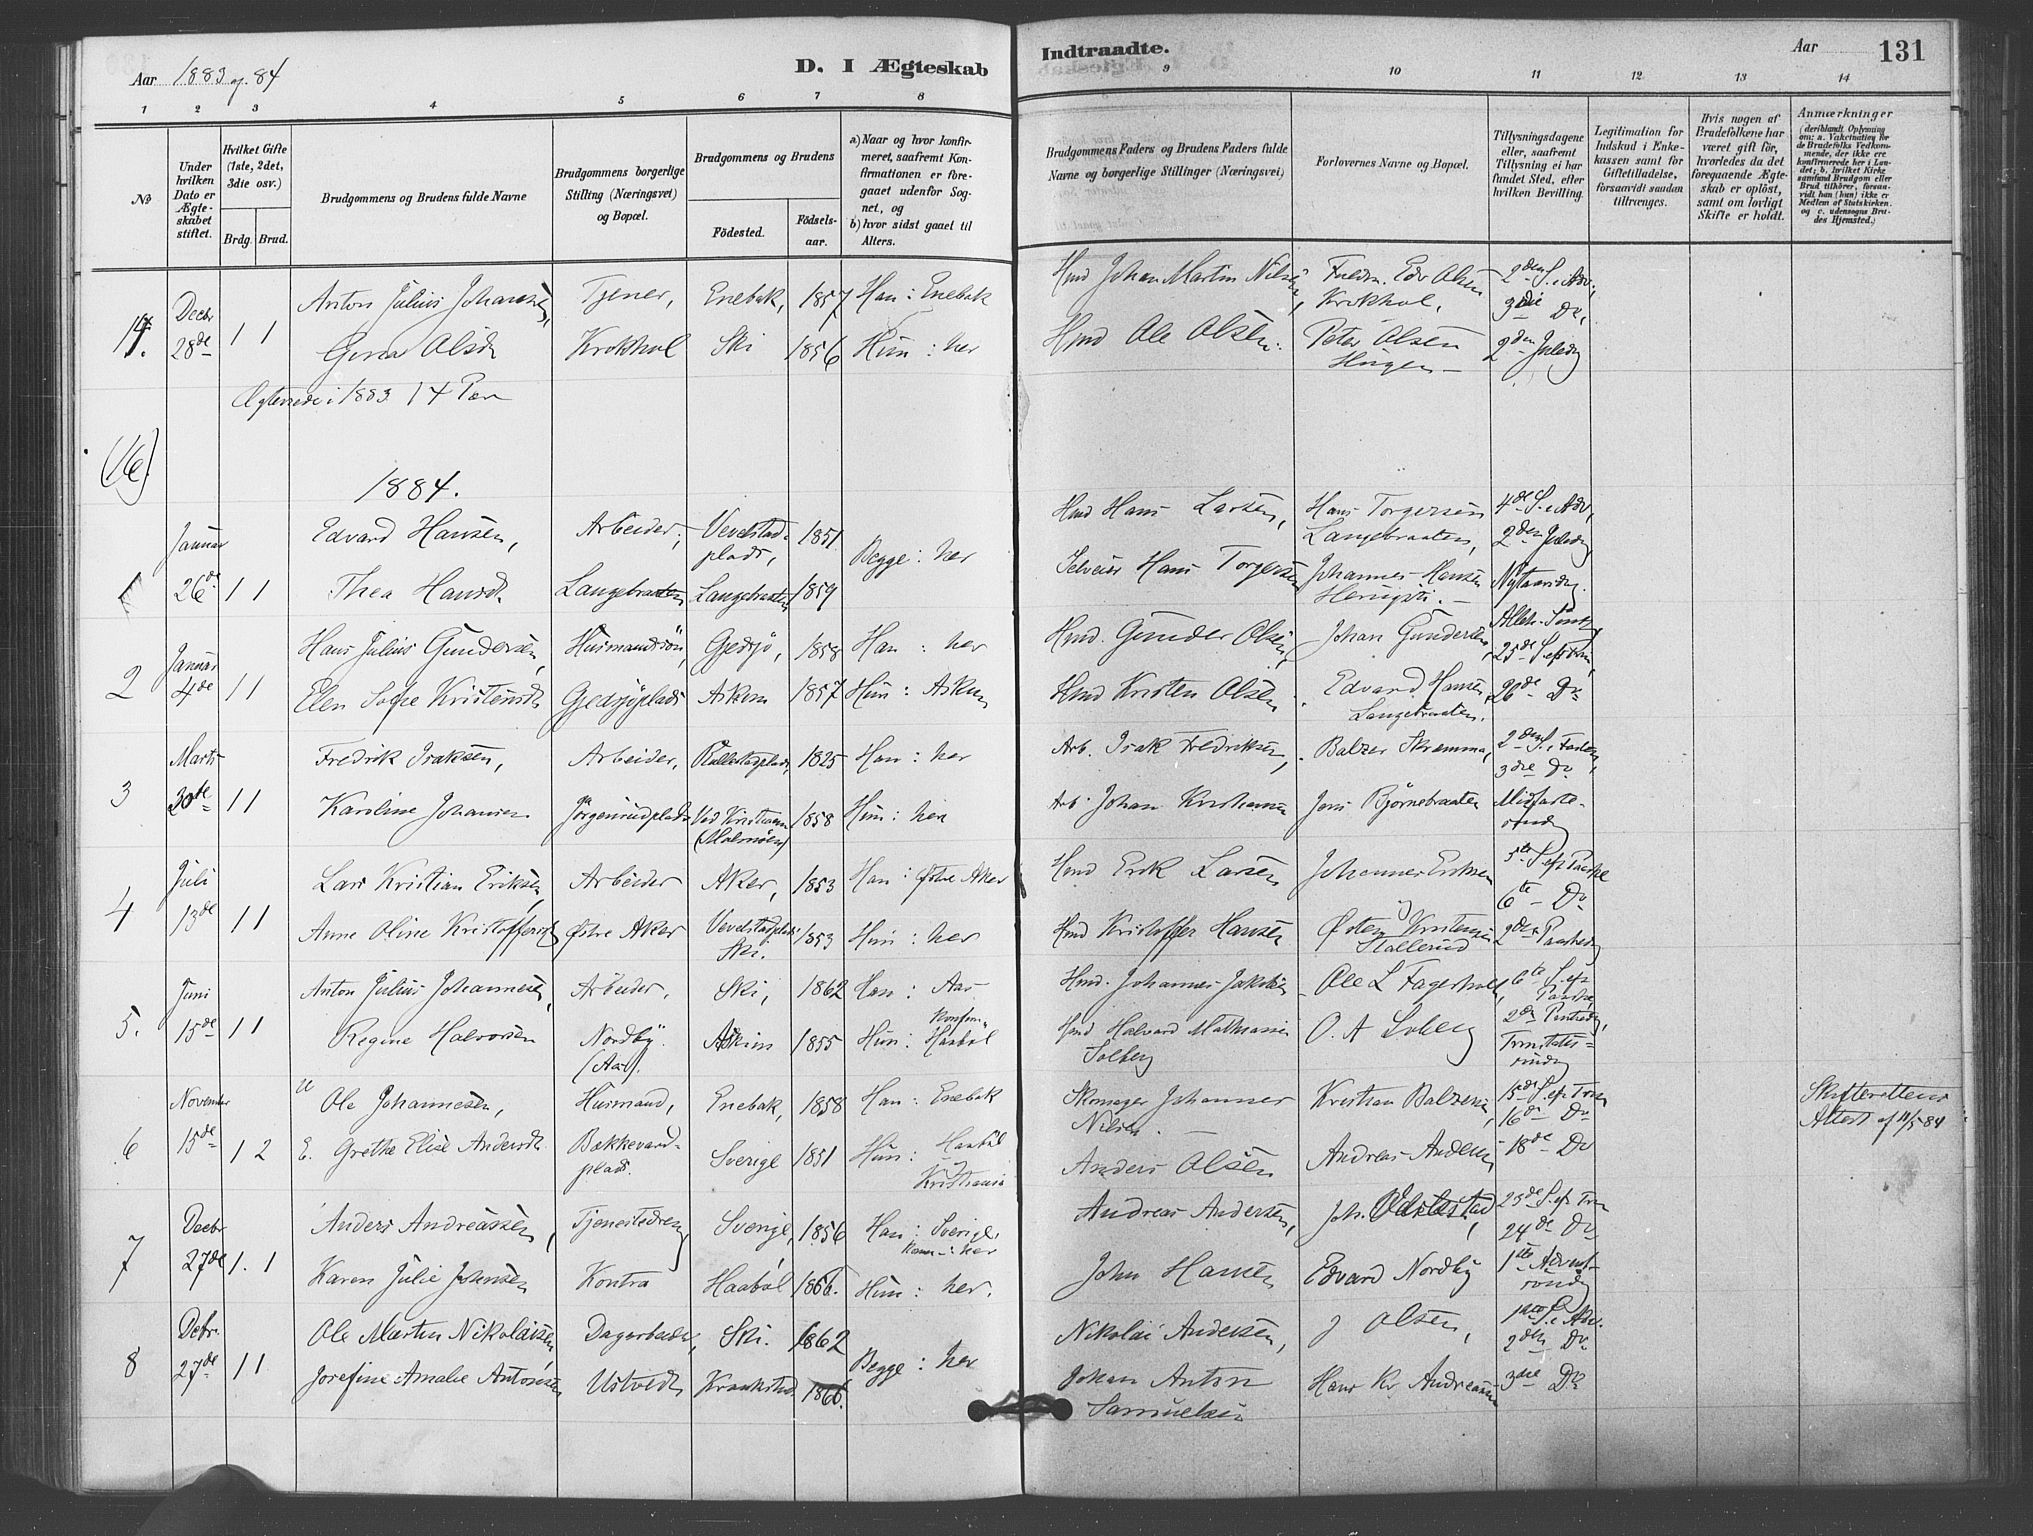 Aar 1883 og 84
D. I Ægteskab
Indtraadte.
Aar
131
1 2 3 4 5 6 7 8 9 10 11 12 13 14
No
Under hvilken Dato er Ægteskabet stiftet.
Hvilket Gifte (1ste, 2det, 3die osv.)
Brdg. Brud.
Brudgommens og Brudens fulde Navne
Brudgommens borgerlige Stilling (Næringsvei) og Bopæl.
Brudgommens og Brudens
Födested.
Födselsaar.
a) Naar og hvor konfirmeret, saafremt Konfirmationen er foregaaet udenfor Sognet, og
b) hvor sidst gaaet til Alters.
Brudgommens Faders og Brudens Faders fulde Navne og borgerlige Stillinger (Næringsvei)
Forlovernes Navne og Bopæl.
Tillysningsdagene eller, saafremt Tillysning ei har fundet Sted, efter hvilken Bevilling.
Legitimation for Indskud i Enkekassen samt for Giftetilladelse, forsaavidt saadan tiltrænges.
Hvis nogen af Brudefolkene har været gift för, hvorledes da det foregaaende Ægteskab er oplöst, samt om lovligt Skifte er holdt.
Anmærkninger
(deriblandt Oplysning om: a. Vakcination for de Brudefolks Vedkommende, der ikke ere konfirmerede her i Landet; b. hvilket Kirkesamfund Brudgom eller Brud tilhörer, forsaavidt han (hun) ikke er Medlem af Statskirken. og c. udensogns Brudes Hjemsted.)
14. Decbr 28de 1 1
Anton Julius Johansen, Tjener, Enebak, 1857 Han: Enebak Hmd Johan Martin Nilsen, Edv Olsen Krokhol, 2den S. i Adv, 3die Do,
Gina Olsd. Krokhol Ski 1856 Hun: her Hmd Ole Olsen. Peter Olsen Haugen 2den Juledg
Ægteviede i 1883 14 Par
(16)
1884.
1 Januar 26de 1 1
Edvard Hansen, Arbeider, Vevelstadplads, 1851 Begge: her Hmd Hans Larsen, Hans Torgersen Langebraaten, 4de S. i Adv, 2den Juledg
Thea Hansd. Langebraaten Langebraaten 1859 Selveier Hans Torgersen Johannes Hansen Nytaarsdg.
2 Januar 4de 1 1
Hans Julius Gundersen, Husmandssön, Gjedsjø, 1858 Han: her Hmd. Gunder Olsen, Johan Gundersen, 25de S. eft Trin,
Elen Sofie Kristensd. Gjedsjøplads Askim 1857 Hun: Askim Hmd Kristen Olsen. Edvard Hansen, Langebraaten. 26de Do
3 Marts 30de 1 1
Fredrik Isaksen, Arbeider, 1825 Han: her Arb. Isak Fredriksen, Balzer Skremma, 2den S. i Fasten, 3die Do
Karoline Johansen Jørgensrudplads Ved Kristiania (Malmøen) 1858 Hun: her Arb. Johan Kristiansen Jens Bjørnebraaten Midfastesöndg
4 Juli 13de 1 1
Lars Kristian Eriksen, Arbeider Aker, 1853 Han: Østre Aker Hmd Erik Larsen Johannes Eriksen 5te S. ef Paaske 6te Do
Anne Oline Kristoffersd Østre Aker Vevelstadplads Ski. 1853 Hun: her Hmd Kristoffer Hansen Østen Kristensen Stallerud 2den Paaskedg
5. Juni 15de 1 1
Anton Julius Johannesen, Arbeider, Ski, 1862 Han: Aas Hmd. Johannes Jakobsen Ole L Fagerholt, 6te S. ef Paaske
Regine Halvorsen Nordby (Aas). Askim 1855 Hun: Konfirm. Haabøl Hmd Halvard Mathiassen Solberg O. A Solberg 2den Pintsedg, Trinitatissöndg
6 November 15de 1 2
U Ole Johannesen, Husmand, Enebak, 1858 Han: Enebak Skomager Johannes Nilsen. Kristian Balzersen, 15de S. ef Trin 16de Do
E. Grethe Elise Andersd. Bækkevardplads. Sverige 1851 Hun: Haabøl Kristiania Anders Olsen Andreas Andersen 18de Do
Skifterettens Attest af 11/5 84
7 Decbr 27de 1. 1
Anders Andreassen, Tjenestedreng Sverige, 1856 Han: Sverige, her Andreas Andersen, Joh. Vevelstad, 23de S. ef Trin 24de Do
Karen Julie Johnsen Kontra Haabøl 1866. Hun: her. John Hansen Edvard Nordby 1ste Adventsöndg
8 Debr. 27de 1 1
Ole Martin Nikolaisen, Dagarbeider, Ski. 1862 Begge: her Nikolai Andersen, J Olsen, 1ste S. i Adv. 2den Do
Josefine Amalie Antonsen Ustvedt Kraakstad 1866. Johan Anton Samuelsen Hans Kr. Andreassen 3die Do